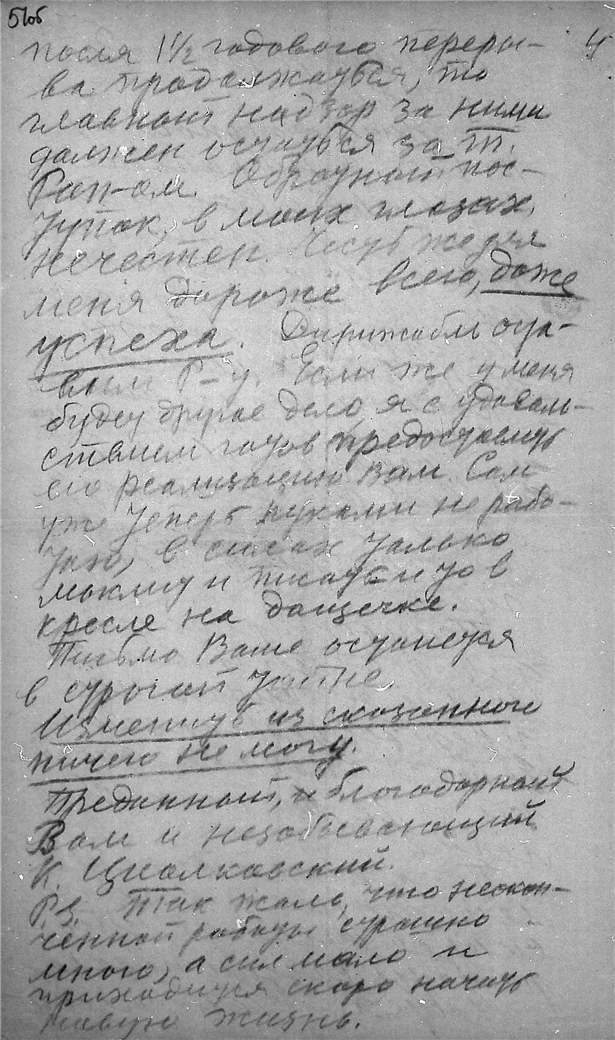 5 об
4
после 1½ годового переры-
ва продолжаться, то
главный надзор за ними
должен остаться за т.
Рап-ом. Обратный пос-
тупок, в моих глазах,
нечестен. Честь же для
меня дороже всего, даже
успеха. Дирижабли оста-
вим Р-у. Если же у меня
будет другое дело я с удоволь-
ствием готов предоставить
его реализацию Вам. Сам
уже теперь руками не рабо-
таю, в силах только
мыслить и писать и то в
кресле на дощечке.
Письмо Ваше останется
в строгой тайне
Изменить из сказанного
ничего не могу.
Преданный, и благодарный
Вам и незабывающий
К. Циолковский.
P.S. Так жаль, что неокон-
ченной работы страшно
много, а сил мало и
приходится скоро начать
новую жизнь.